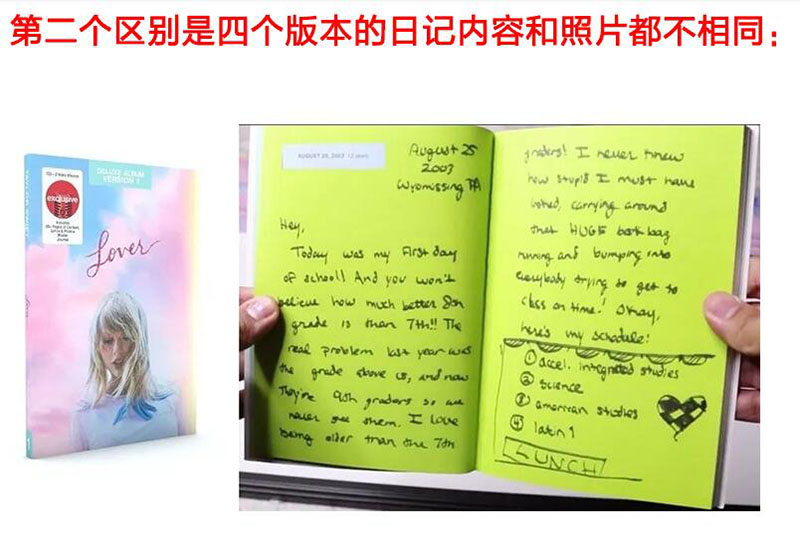 第二个区别是四个版本的日记内容和照片都不相同：
DELUXE ALBUM
VERSION 1
exclusive
Lover
1
AUGUST 25, 2003 12 years
August 25
2003
Wyomissing PA
Hey,
Today was my first day
of school! And you won't
believe how much better 8th
grade is than 7th!! The
real problem last year was
the grade above us, and now
They're 9th graders so we
never see them. I love
being older than the 7th
graders! I never knew
how stupid I must have
looked, carrying around
that HUGE book bag
running and bumping into
everybody trying to get to
class on time! Okay,
here's my schedule:
① accel. integrated studies
② science
③ american studies
④ latin 1
LUNCH